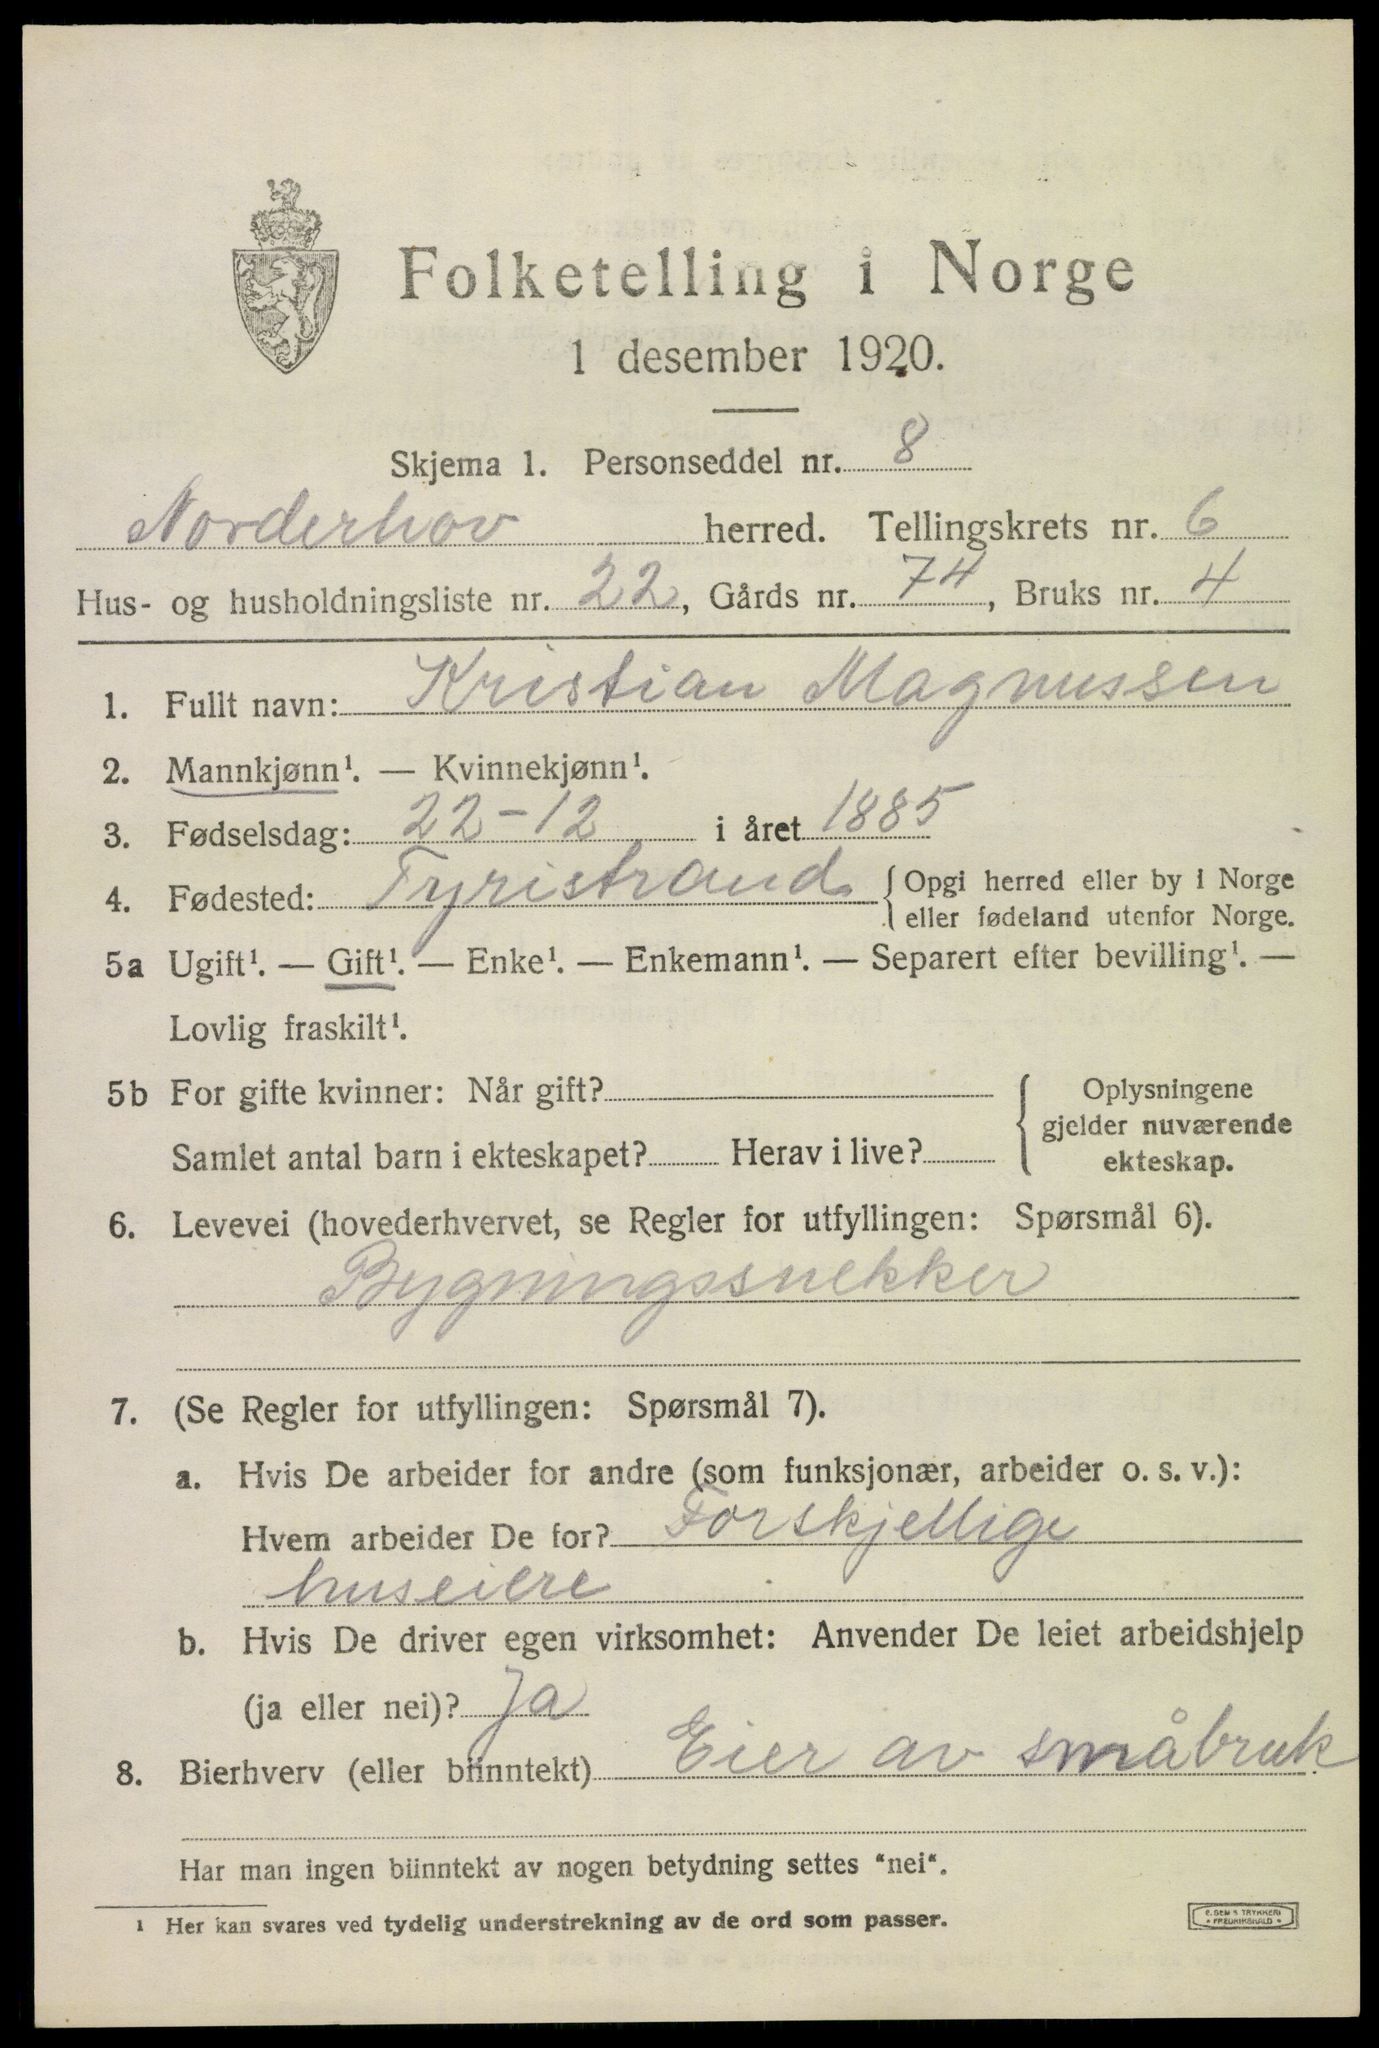 Folketelling i Norge
1 desember 1920.
Skjema 1. Personseddel nr. 8
Norderhov herred. Tellingskrets nr. 6
Hus- og husholdningsliste nr. 22, Gårds nr. 74, Bruks nr. 4
1. Fullt navn: Kristian Magnussen
2. Mannkjønn¹. — Kvinnekjønn¹.
3. Fødselsdag: 22-12 i året 1885
4. Fødested: Tyristrand { Opgi herred eller by i Norge
eller fødeland utenfor Norge.
5a Ugift¹. — Gift¹. — Enke¹. — Enkemann¹. — Separert efter bevilling¹. —
Lovlig fraskilt¹.
5b For gifte kvinner: Når gift?
Samlet antal barn i ekteskapet? Herav i live?
Oplysningene
gjelder nuværende
ekteskap.
6. Levevei (hovederhvervet, se Regler for utfyllingen: Spørsmål 6).
Bygningssnekker
7. (Se Regler for utfyllingen: Spørsmål 7).
a. Hvis De arbeider for andre (som funksjonær, arbeider o. s. v.):
Hvem arbeider De for? Forskjellige
huseiere
b. Hvis De driver egen virksomhet: Anvender De leiet arbeidshjelp
(ja eller nei)? Ja
8. Bierhverv (eller biinntekt) Eier av småbruk
Har man ingen biinntekt av nogen betydning settes "nei".
¹ Her kan svares ved tydelig understrekning av de ord som passer.
E. SEM'S TRYKKERI
• FREDRIKSHALD •